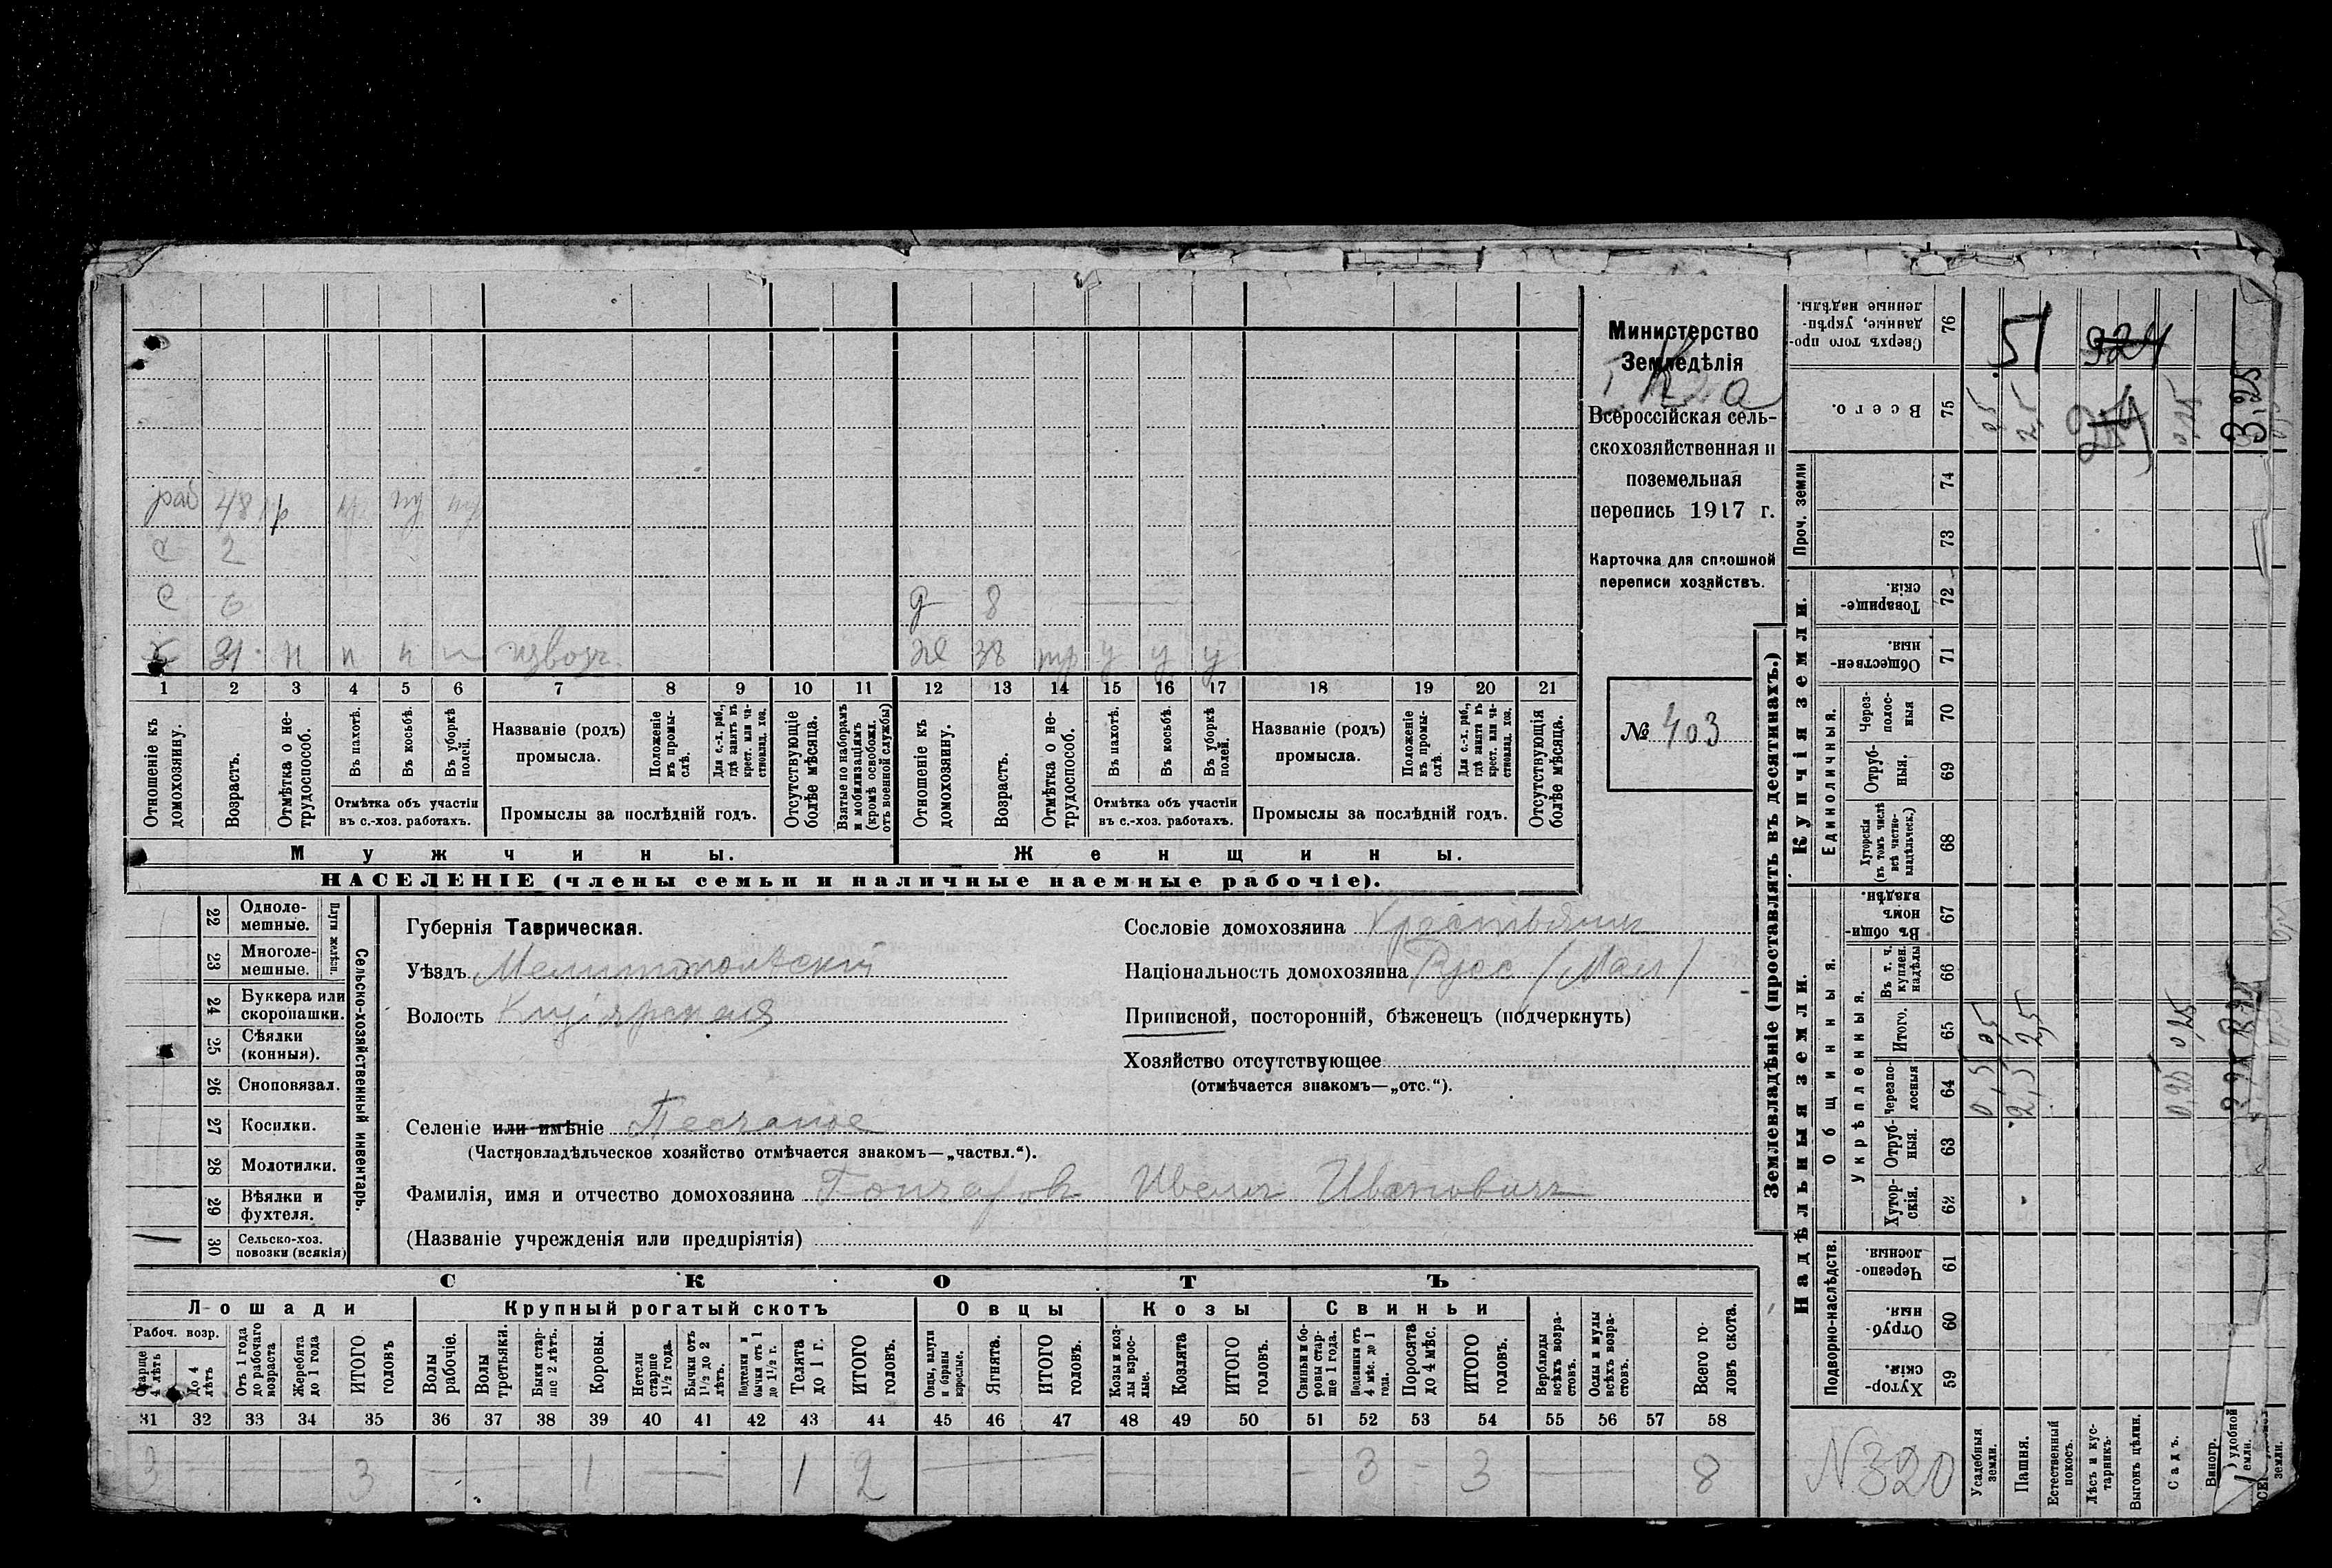 Министерство
Земледѣлія
Всероссійская сель-
скохозяйственная и
поземельная
перепись 1917 г.
Карточка для сплошной
переписи хозяйствъ.
№ 403
раб 48
с 2
с 6 д 8
х 31 п п п извозч. же 38 у у у
1 2 3 4 5 6 7 8 9 10 11 12 13 14 15 16 17 18 19 20 21
Отношеніе къ домохозяину.
Возрастъ.
Отмѣтка о не-трудоспособ.
Въ пахотѣ.
Въ косьбѣ.
Въ уборкѣ полей.
Отмѣтка объ участіи въ с.-хоз. работахъ.
Названіе (родъ) промысла.
Положеніе въ промы-слѣ.
Для с.-х. раб., гдѣ занятъ въ крест. или ча-стновлад. хоз.
Промыслы за послѣдній годъ.
Отсутствующіе болѣе мѣсяца.
Взятые по наборамъ и мобилизаціямъ (кромѣ освобожд. отъ военной службы)
Отношеніе къ домохозяину.
Возрастъ.
Отмѣтка о не-трудоспособ.
Въ пахотѣ.
Въ косьбѣ.
Въ уборкѣ полей.
Отмѣтка объ участіи въ с.-хоз. работахъ.
Названіе (родъ) промысла.
Положеніе въ промы-слѣ.
Для с.-х. раб., гдѣ занята въ крест. или ча-стновлад. хоз.
Промыслы за послѣдній годъ.
Отсутствующія болѣе мѣсяца.
Мужчины. Женщины.
НАСЕЛЕНІЕ (члены семьи и наличные наемные рабочіе).
22 Одноле-мешные.
23 Многоле-мешные.
Плуги желѣзн.
24 Буккера или скоропашки.
25 Сѣялки (конныя).
26 Сноповязал.
27 Косилки.
28 Молотилки.
29 Вѣялки и фухтеля.
30 Сельско-хоз. повозки (всякія)
Сельско-хозяйственный инвентарь.
Губернія Таврическая.
Уѣздъ Мелитопольскій
Волость Кизіярская
Сословіе домохозяина Крестьянинъ
Національность домохозяина Рус (Мал)
Приписной, посторонній, бѣженецъ (подчеркнуть)
Хозяйство отсутствующее
(отмѣчается знакомъ—„отс.“).
Селеніе или имѣніе Песчаное
(Частновладѣльческое хозяйство отмѣчается знакомъ—„частвл.“).
Фамилія, имя и отчество домохозяина Гончаровъ Ивановичъ
(Названіе учрежденія или предпріятія)
СКОТЪ
Лошади Крупный рогатый скотъ Овцы Козы Свиньи
Рабоч. возр.
Старше 4 лѣтъ
До 4 лѣтъ
Отъ 1 года до рабочаго возраста
Жеребята до 1 года
ИТОГО головъ
Волы рабочіе.
Волы третьяки.
Быки стар-ше 2 лѣтъ.
Коровы.
Нетели старше 1½ года.
Бычки отъ 1½ до 2 лѣтъ.
Подтелки и бычки отъ 1 до 1½ г.
Телята до 1 г.
ИТОГО головъ.
Овцы, валухи и бараны взрослые.
Ягнята.
ИТОГО головъ.
Козы и коз-лы взрос-лые.
Козлята
ИТОГО головъ.
Свиньи и бо-ровы стар-ше 1 года.
Подсвинки отъ 4 мѣс. до 1 года.
Поросята до 4 мѣс.
ИТОГО головъ.
Верблюды всѣхъ возра-стовъ.
Ослы и мулы всѣхъ возра-стовъ.
Всего го-ловъ скота.
31 32 33 34 35 36 37 38 39 40 41 42 43 44 45 46 47 48 49 50 51 52 53 54 55 56 57 58
3 — — — 3 — — — 1 — — 1 2 — — — — — — — 3 — 3 — — 8
Землевладѣніе (проставлять въ десятинахъ.)
Сверхъ того про-данные, укрѣп-ленные надѣлы. 76 51 924
Всего. 75 0,5 2,5 0,25 3,25
Проч. земли 74 73
Купчія земли.
Товарище-скія 72
Обществен-ныя 71
Единоличныя.
Через-полос-ныя 70
Отруб-ныя. 69
Хуторскія (въ томъ числѣ всѣ частно-владѣльческ.) 68
Надѣльныя земли.
Общинныя.
Въ общин-номъ владѣн. 67
Укрѣпленныя.
Въ т. ч. куплен. надѣлы 66
Итого. 65 0,5 2,5 0,25
Черезпо-лосныя 64 0,5 2,5 0,25
Отруб-ныя. 63
Хутор-скія. 62
Подворно-наслѣдств.
Черезпо-лосныя. 61
Отруб-ныя. 60
Хутор-скія. 59
N 320
Усадебныя земли.
Пашня.
Естественный покосъ.
Лѣсъ и кус-тарникъ.
Выгонъ цѣлин.
Садъ.
Виногр.
удобной земли.
земли.